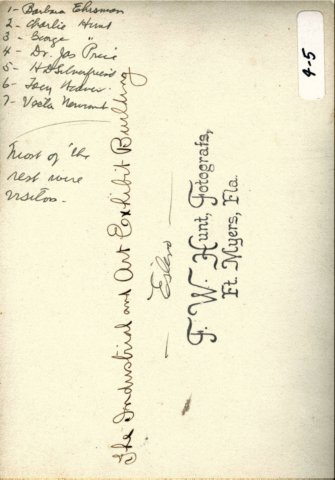 1- Barbara Ehrsman
2- Charlie Hunt
3- George "
4- Dr. Jas Price
5- H D Silverfriend
6- Tony Weaver
7- Vesta Newcomb
Most of the
rest were
visitors.
4-5
The Industrial and Art Exhibit Building
— Estero —
F. W. Hunt, Fotografs,
Ft. Myers, Fla.